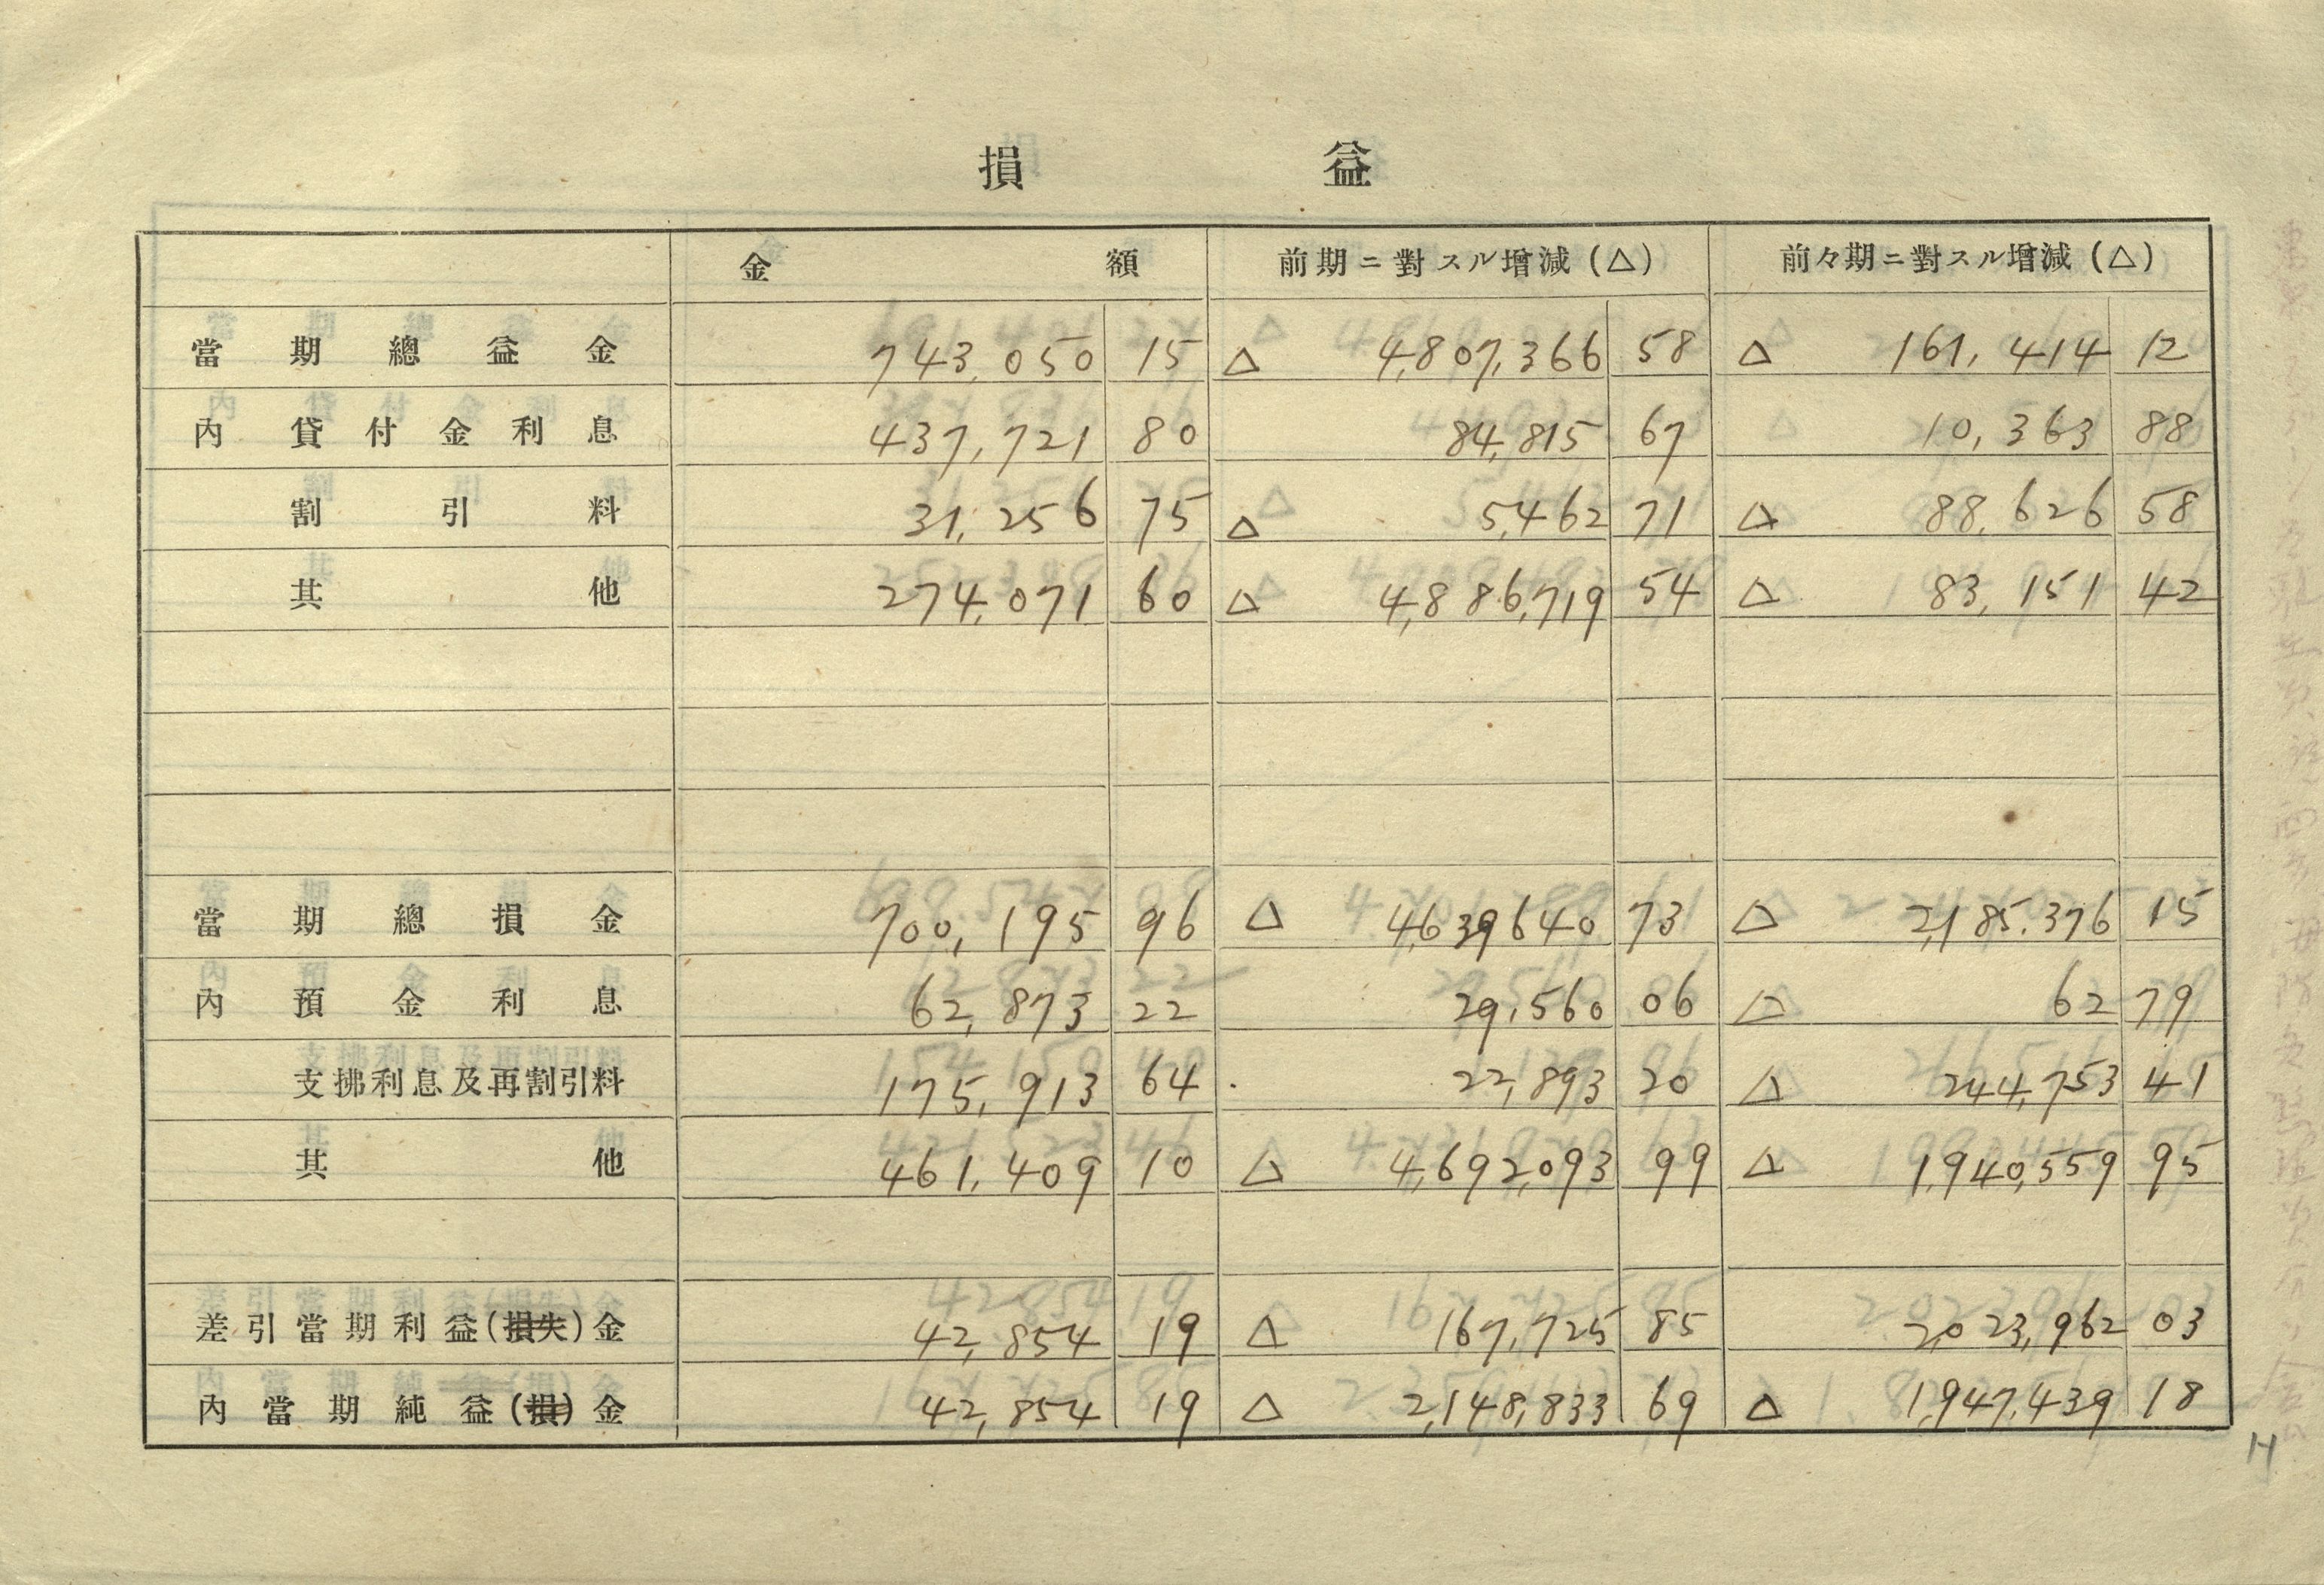 損益
金額 前期ニ對スル增減(△) 前々期ニ對スル增減(△)
當期總益金 743,050 15 △ 4,807,366 58 △ 161,414 12
內貸付金利息 437,721 80 84,815 67 10,363 88
割引料 31,256 75 △ 5,462 71 △ 88,626 58
其他 274,071 60 △ 4,886,719 54 △ 83,151 42
當期總損金 700,195 96 △ 4,639,640 73 △ 2,185,376 15
內預金利息 62,873 22 29,560 06 △ 62 79
支拂利息及再割引料 175,913 64 22,893 20 △ 244,753 41
其他 461,409 10 △ 4,692,093 99 △ 1,940,559 95
差引當期利益(損失)金 42,854 19 △ 167,725 85 2,023,962 03
內當期純益(損)金 42,854 19 △ 2,148,833 69 △ 1,947,439 18